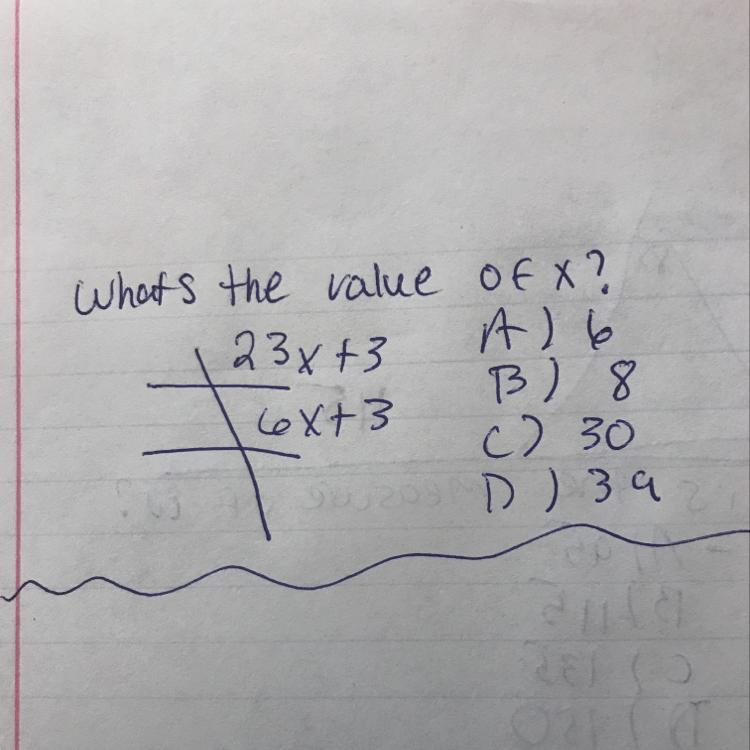 whats the value of x?
23x+3
6x+3
A) 6
B) 8
C) 30
D) 39